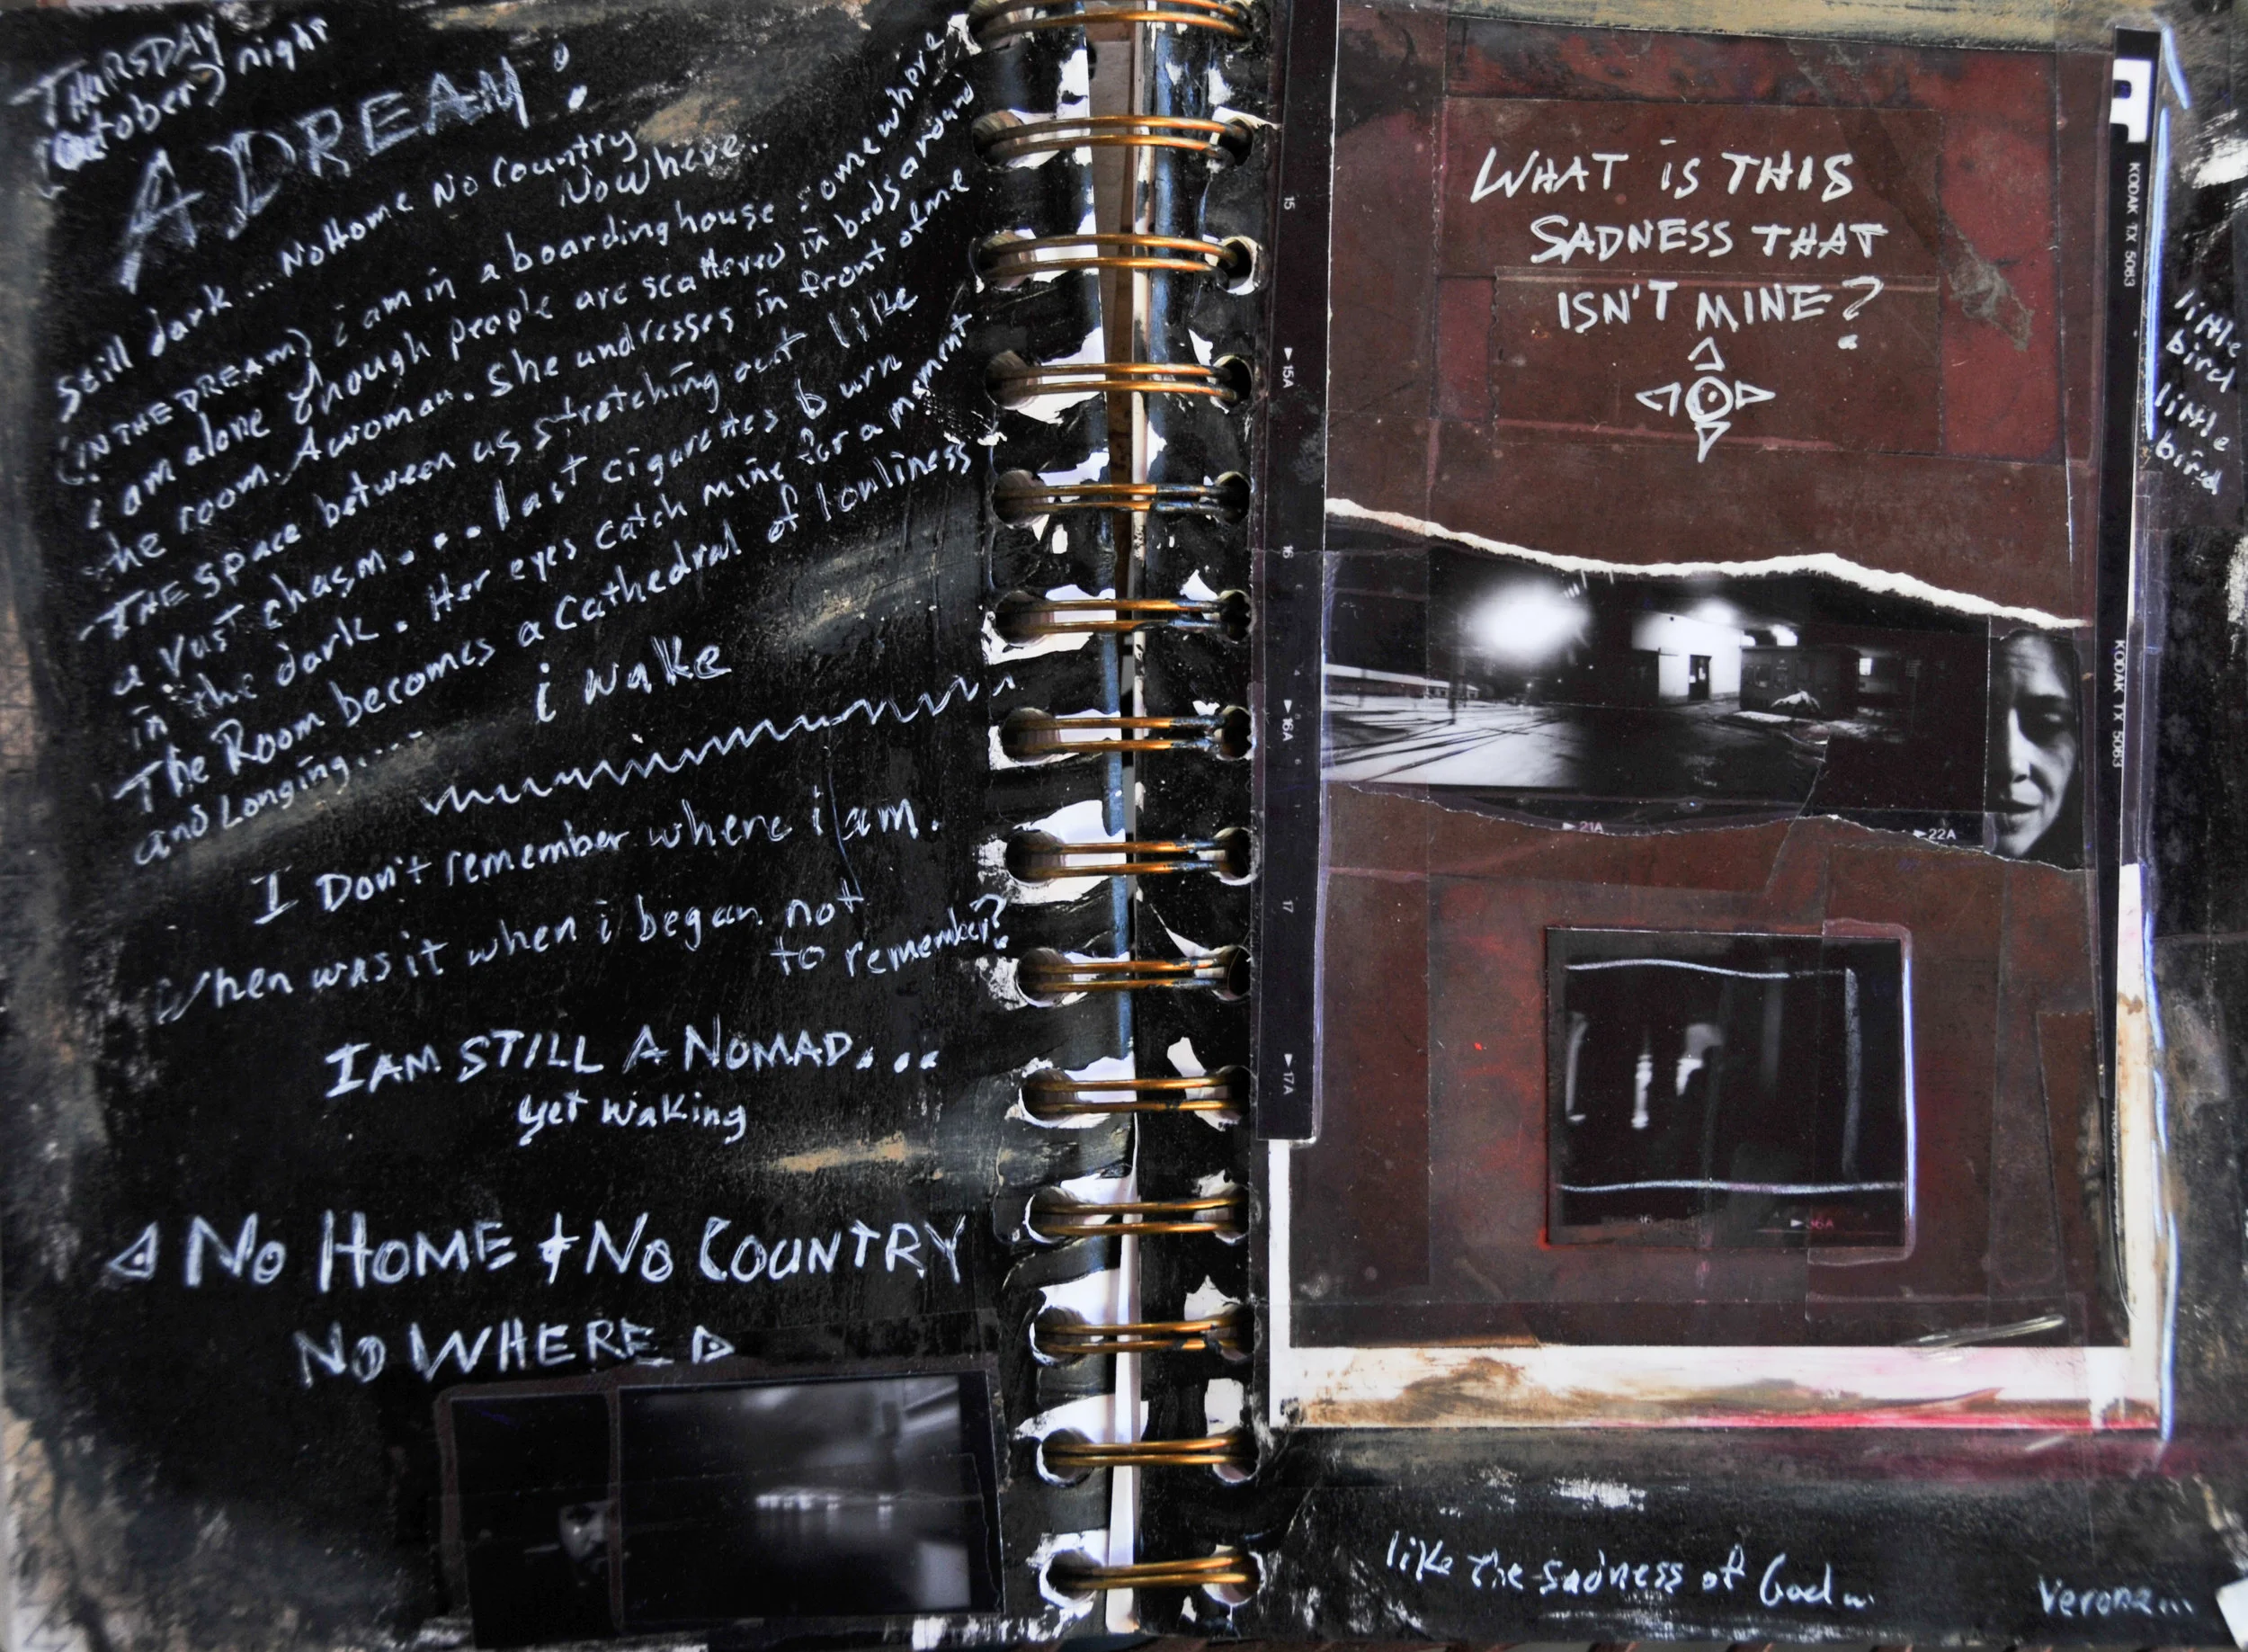 THURSDAY
October night
A DREAM:
Still dark... No Home No Country
NoWhere..
(IN THE DREAM) i am in a boardinghouse somewhere
i am alone though people are scattered in beds around
the room. A woman. She undresses in front of me
THE space between us stretching out like
a vast chasm.... last cigarettes burn
in the dark. Her eyes catch mine for a moment
The Room becomes a Cathedral of lonliness
and Longing....
i wake
I Don't remember where i am.
When was it when i began not
to remember?
I AM STILL A NOMAD...
yet waking
No HOME + No COUNTRY
No WHERE
WHAT iS THIS
SADNESS THAT
ISN'T MINE?
little
bird
little
bird
like the sadness of God...
Verona...
15
▶15A
16
▶16A
17
▶17A
KODAK TX 5063
KODAK TX 5063
▶21A
▶22A
▶36A